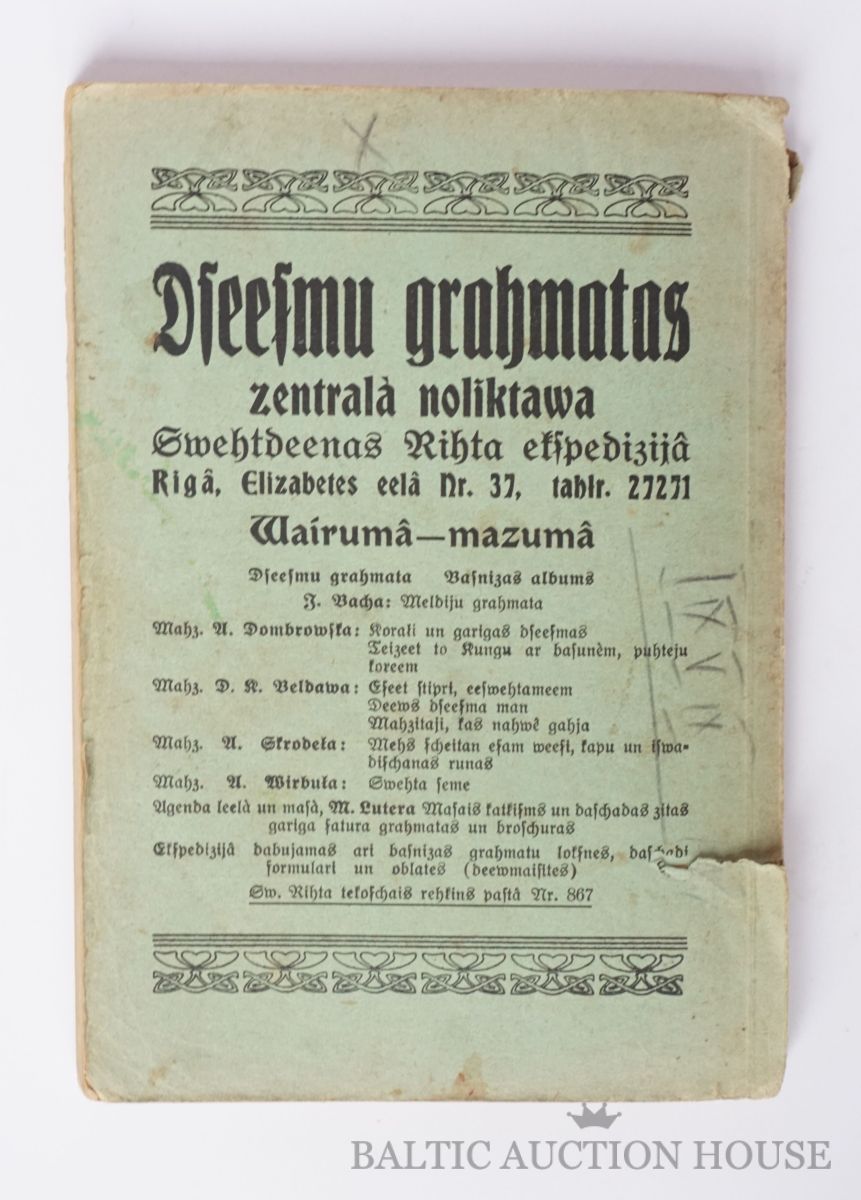 X
Dſeeſmu grahmatas
zentralà noliktawa
Swehtdeenas Rihta ekſpedizijâ
Rigâ, Elizabetes eelâ Nr. 37, tahlr. 27271
Wairumâ—mazumâ
Dſeeſmu grahmata Baſnizas albums
J. Bacha: Meldiju grahmata
Mahz. A. Dombrowſka: Korali un garigas dſeeſmas
Teizeet to Kungu ar baſunèm, puhteju
koreem
Mahz. D. K. Beldawa: Eſeet ſtipri, eeſwehtameem
Deews dſeeſma man
Mahzitaji, kas nahwê gahja
Mahz. A. Skrodeļa: Mehs ſcheitan eſam weeſi, kapu un iſwa-
diſchanas runas
Mahz. A. Wirbuļa: Swehta ſeme
Agenda leelà un maſà, M. Lutera Maſais katkiſms un daſchadas zitas
gariga ſatura grahmatas un broſchuras
Ekſpedizijâ dabujamas ari baſnizas grahmatu lokſnes, daſchadi
formulari un oblates (deewmaiſites)
Sw. Rihta tekoſchais rehķins paſtâ Nr. 867
I IX V IX
BALTIC AUCTION HOUSE